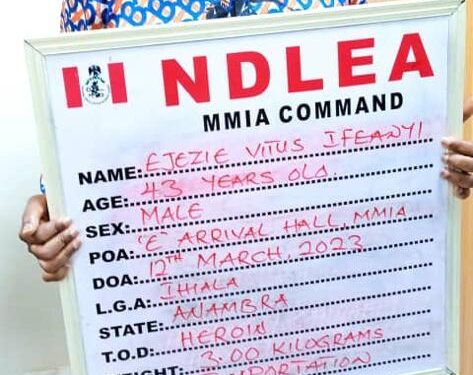 NDLEA
MMIA COMMAND
NAME: EJEZIE VITUS IFEANYI
AGE: 43 YEARS OLD
SEX: MALE
POA: 'E' ARRIVAL HALL, MMIA
DOA: 12TH MARCH, 2023
L.G.A: IHIALA
STATE: ANAMBRA
T.O.D: HEROIN
WEIGHT: 3.00 KILOGRAMS
IMPORTATION